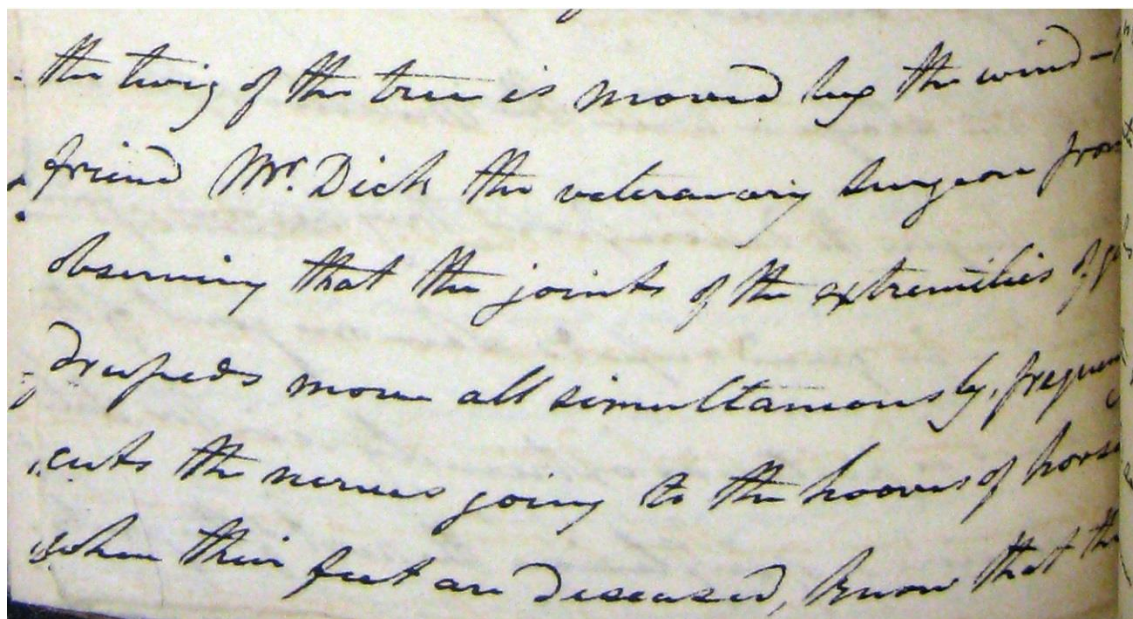 the twig of the tree is moved by the wind –
friend Mr. Dick the veteranary surgeon from
observing that the joints of the extremities of
drupeds move all simultaneously, frequen
cuts the nerves going to the hooves of horse
when their feet are diseased, know that the